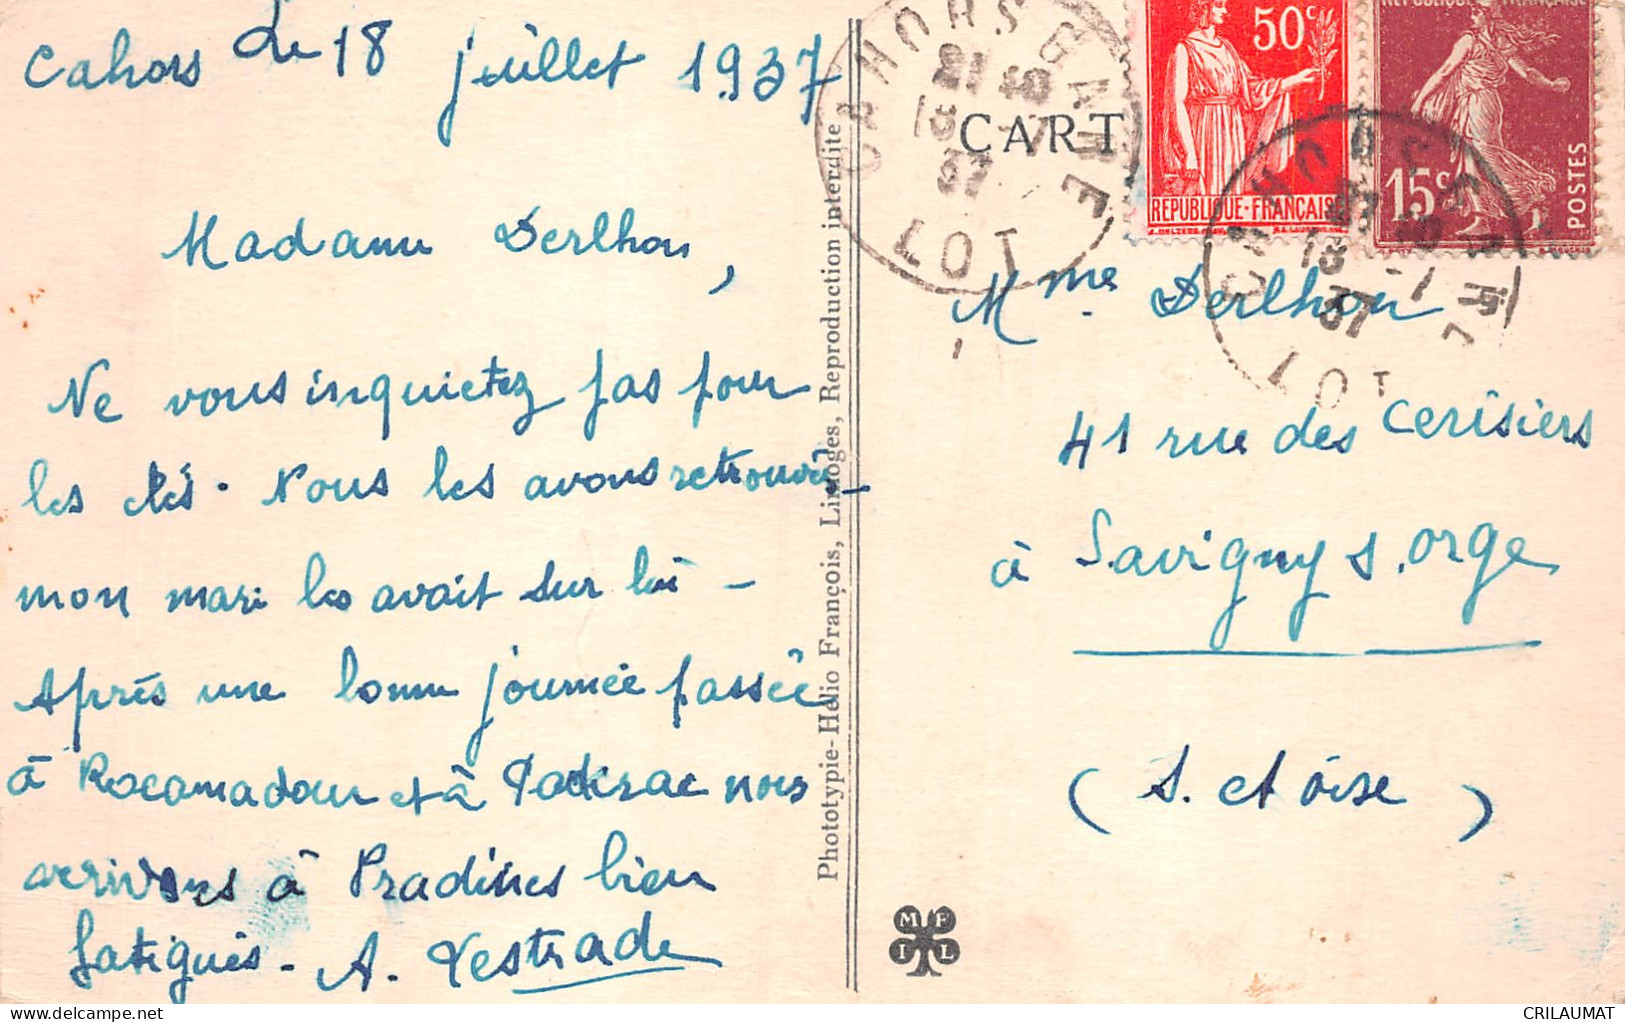 Cahors Le 18 juillet 1937
Madame Derlhon,
Ne vous inquietez pas pour
les clés. Nous les avons retrouvés
mon mari les avait sur lui -
Après une bonne journée passée
à Rocamadour et à Padirac nous
arrivons à Pradines bien
fatigués - A. Testrade
Phototypie-Hélio François, Limoges, Reproduction interdite
CART
CAHORS GARE
21 40
18 -7
37
LOT
50c
REPUBLIQUE-FRANÇAIS
REPUBLIQUE FRANÇAISE
15c
POSTES
CAHORS GARE
21 40
18 -7
37
LOT
Mme. Derlhon
41 rue des Cerisiers
à Savigny s. orge
(S. et oise)
M F
I L
CRILAUMAT